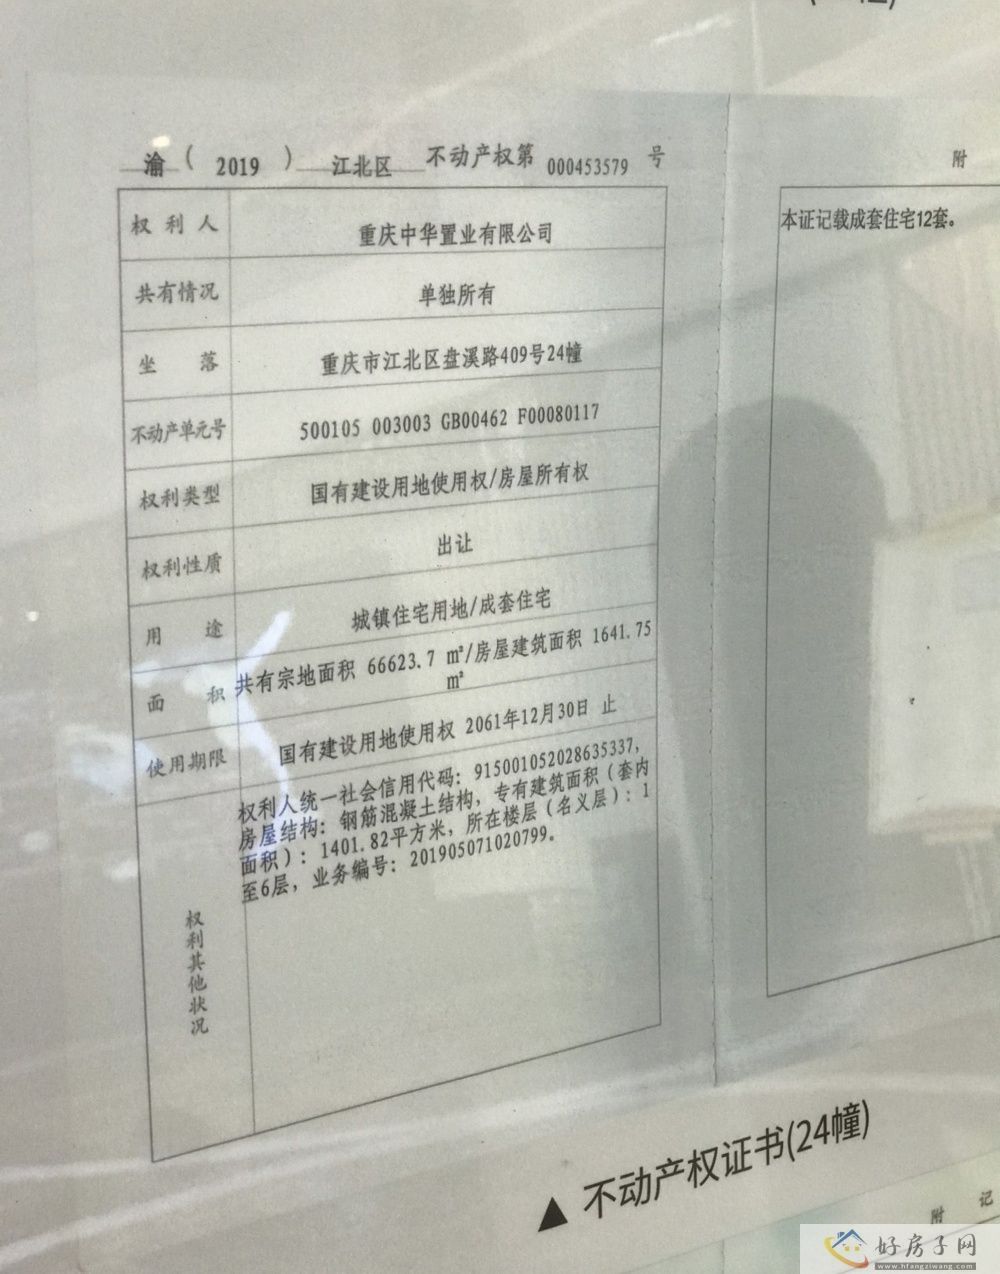 渝 ( 2019 ) 江北区 不动产权第 000453579 号
权利人 重庆中华置业有限公司
共有情况 单独所有
坐落 重庆市江北区盘溪路409号24幢
不动产单元号 500105 003003 GB00462 F00080117
权利类型 国有建设用地使用权/房屋所有权
权利性质 出让
用途 城镇住宅用地/成套住宅
面积 共有宗地面积 66623.7 ㎡/房屋建筑面积 1641.75
㎡
使用期限 国有建设用地使用权 2061年12月30日 止
权利其他状况
权利人统一社会信用代码：915001052028635337，
房屋结构：钢筋混凝土结构，专有建筑面积（套内
面积）：1401.82平方米，所在楼层（名义层）：1
至6层，业务编号：201905071020799。
附
本证记载成套住宅12套。
▲ 不动产权证书(24幢)
附 记
好房子网
www.hfangziwang.com